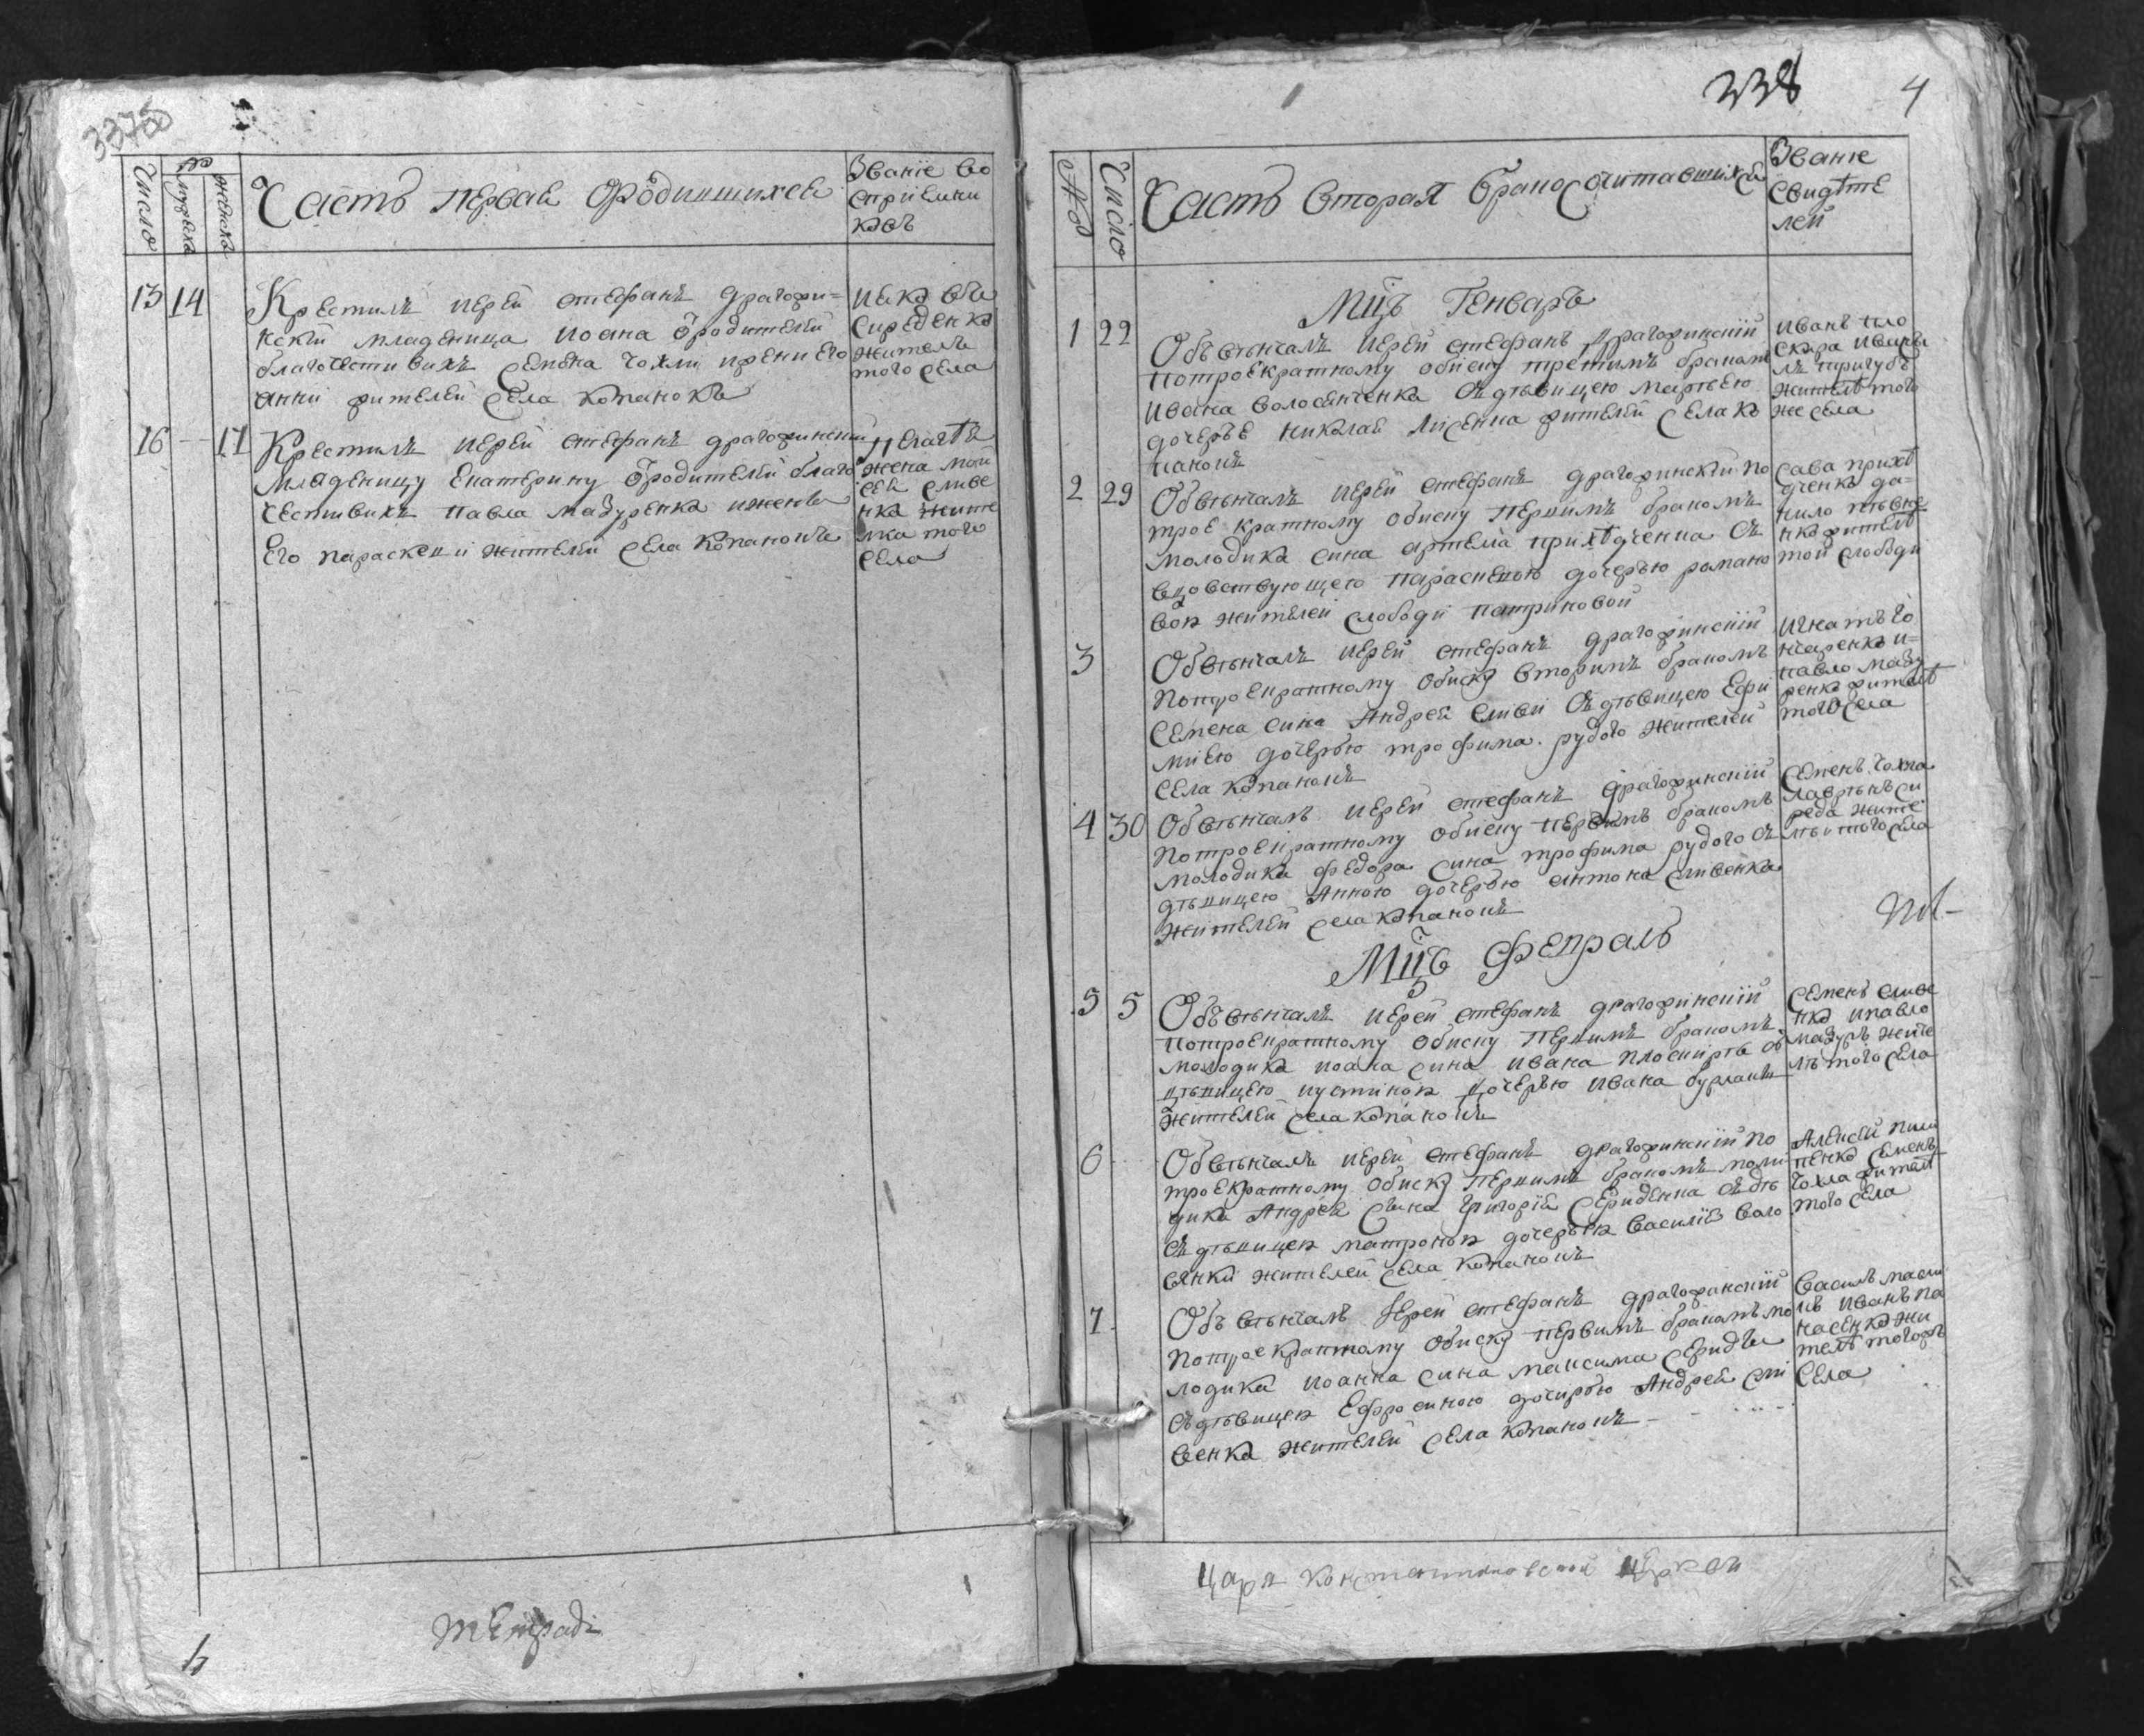 Число
№
мужска
женска
Часть первая ородившихся
Званіе во
спріемни
ковъ
13 14
Крестилъ иерей стефанъ драгожи=
нскій младенца иоана ѿродителей
благочестивихъ семена чохли ижени его
анни жителей села копанокъ
Сиреденко
житель
того села
16 17
Крестилъ иерей стефанъ драгожинскій
младеницу Екатерину ѿродителей благо
честивихъ павла мазуренка иженъ
его параскеви жителей села копанокъ
Пелагѣя
жена мои
сея сливе
нка жите
лка того
села
тетради
338 4
№
Число
Часть вторая бракосочитавшихся
Званіе
свидѣте
лей
Мцъ Генваръ
1 22
Объвѣнчалъ иерей стефанъ драгожинскій
потроекратному обиску третимъ бракомъ
ивана волосянченка съдѣвицею марѳѣю
дочерѣе николая лисенка жителей села ко
панокъ
иванъ пло
скира
житель того
же села
2 29
Обвѣнчалъ иерей стефанъ драгожинскій по
трое кратному обиску первимъ бракомъ
молодика сина артема прихѣдченка съ
вдовствующею параскевою дочерью романо
вою жителей слободи патриковой
Сава прихѣ
дченко да=
нило пѣвне
нко жителѣ
той слободи
3
Обвѣнчалъ иерей стефанъ драгожинскій
потроекратному обиску вторимъ бракомъ
семена сина андрея сливи съдѣвицею ефи
миею дочерью трофима рудого жителей
села копанокъ
игнатъ го
нчаренко и=
павло мазу
ренко жителѣ
того села
4 30
Обвѣнчалъ иерей стефанъ драгожинскій
потроекратному обиску первимъ бракомъ
молодика федора сина трофима рудого съ
дѣвицею анною дочерью антона сливенка
жителей села копанокъ
Семенъ чохла
лаврѣнъ си
реда жите
лѣ того села
Мцъ Февраль
5 5
Объвѣнчалъ иерей стефанъ драгожинскій
потроекратному обиску первимъ бракомъ
молодика иоана сина ивана плоскирѣ съ
дѣвицею иустиною дочерью ивана бурлаки
жителей села копанокъ
Семенъ сливе
нко ипавло
мазуръ жите
лѣ того села
6
Обвѣнчалъ иерей стефанъ драгожинскій по
троекратному обиску первимъ бракомъ моло
дика андрея сина григорія середенка съдѣ
съдѣвицею матроною дочерью василія воло
сянки жителей села копанокъ
Алексѣй пили
пенко семенъ
чохла жителѣ
того села
7
Объвѣнчалъ иерей стефанъ драгожинскій
потроекратному обиску первимъ бракомъ мо
лодика иоанна сина максима середи
съдѣвицею ефросиною дочирью андрея сли
венка жителей села копанокъ
Василь
иванъ па
насенко жи
телѣ тогожъ
села
Царя константиновской церкви